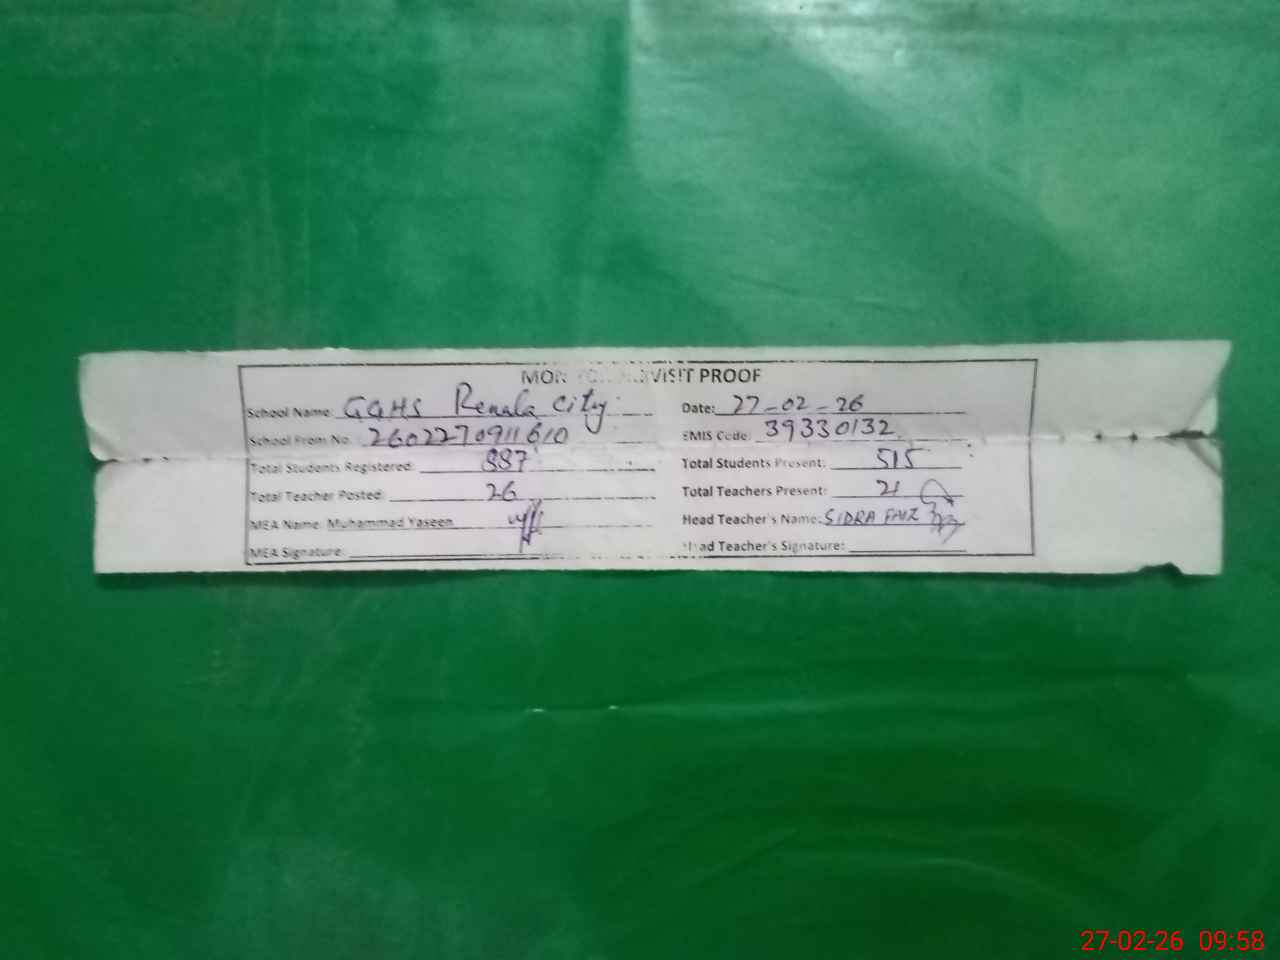 VISIT PROOF
School Name: GGHS Renala City
Date: 27-02-26
School From No. 2602270911610
EMIS Code: 39330132
Total Students Registered: 887
Total Students Present: 515
Total Teacher Posted: 26
Total Teachers Present: 21
MEA Name: Muhammad Yaseen
Head Teacher's Name: SIDRA FAIZ
MEA Signature:
Head Teacher's Signature:
27-02-26 09:58